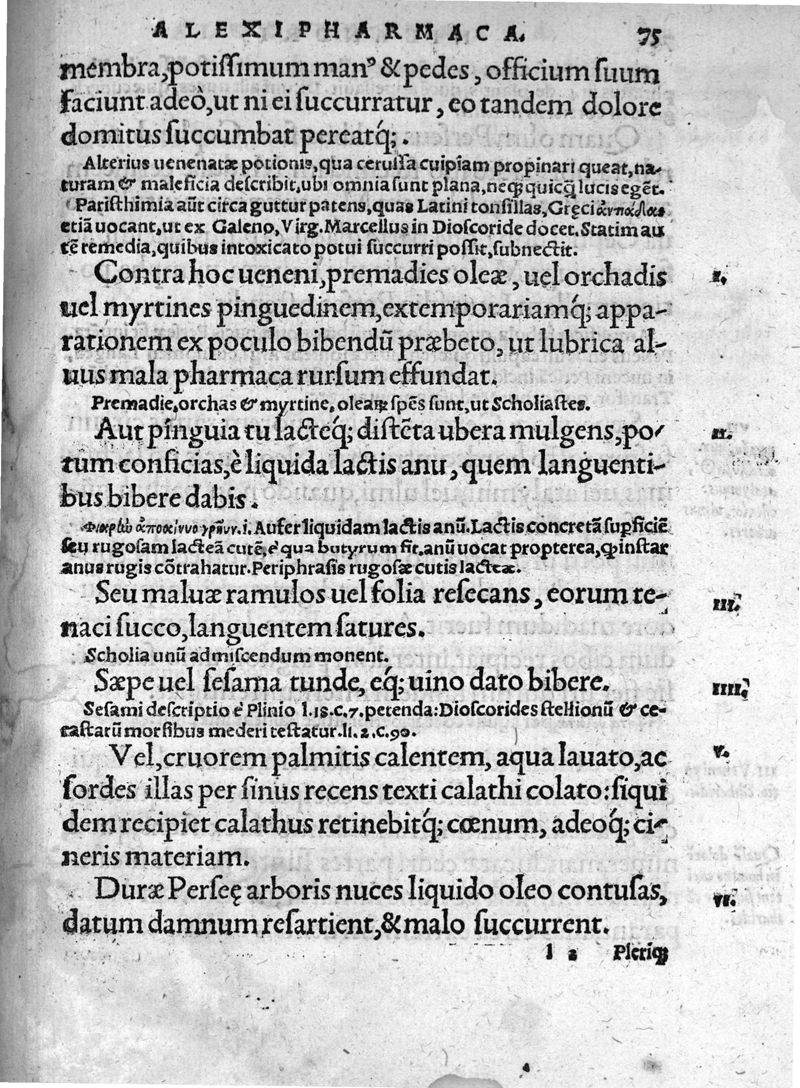 ALEXIPHARMACA. 75
membra, potissimum manꝰ & pedes, officium suum
faciunt adeò, ut ni ei succurratur, eo tandem dolore
domitus succumbat pereatq́;.
Alterius uenenatæ potionis, qua cerussa cuipiam propinari queat, na-
turam & maleficia describit, ubi omnia sunt plana, neq́; quicq̃ lucis egẽt.
Paristhimia aũt circa guttur patens, quas Latini tonsillas, Gręci
etiã uocant, ut ex Galeno, Virg. Marcellus in Dioscoride docet. Statim au
tẽ remedia, quibus intoxicato potui succurri possit, subnectit.
Contra hoc ueneni, premadies oleæ, uel orchadis
uel myrtines pinguedinem, extemporariamq́; appa-
rationem ex poculo bibendũ præbeto, ut lubrica al-
uus mala pharmaca rursum effundat.
I.
Premadie, orchas & myrtine, oleaꝝ spẽs sunt, ut Scholiastes.
Aut pinguia tu lacteq́; distẽta ubera mulgens, po-
tum conficias, è liquida lactis anu, quem languenti-
bus bibere dabis.
II.
i. Aufer liquidam lactis anũ. Lactis concretã supficiẽ
seu rugosam lacteã cutẽ, è qua butyrum fit, anũ uocat propterea, ꝙ instar
anus rugis cõtrahatur. Periphrasis rugosæ cutis lacteæ.
Seu maluæ ramulos uel folia resecans, eorum te-
naci succo, languentem satures.
III.
Scholia unũ admiscendum monent.
Sæpe uel sesama tunde, eq́; uino dato bibere.
IIII.
Sesami descriptio è Plinio l. 18. c. 7. petenda: Dioscorides stellionũ & ce-
rastarũ morsibus mederi testatur. li. 2. c. 90.
Vel, cruorem palmitis calentem, aqua lauato, ac
sordes illas per sinus recens texti calathi colato: siqui
dem recipiet calathus retinebitq́; cœnum, adeoq́; ci-
neris materiam.
V.
Duræ Perseę arboris nuces liquido oleo contusas,
datum damnum resartient, & malo succurrent.
VI.
l 2 Pleriq́;